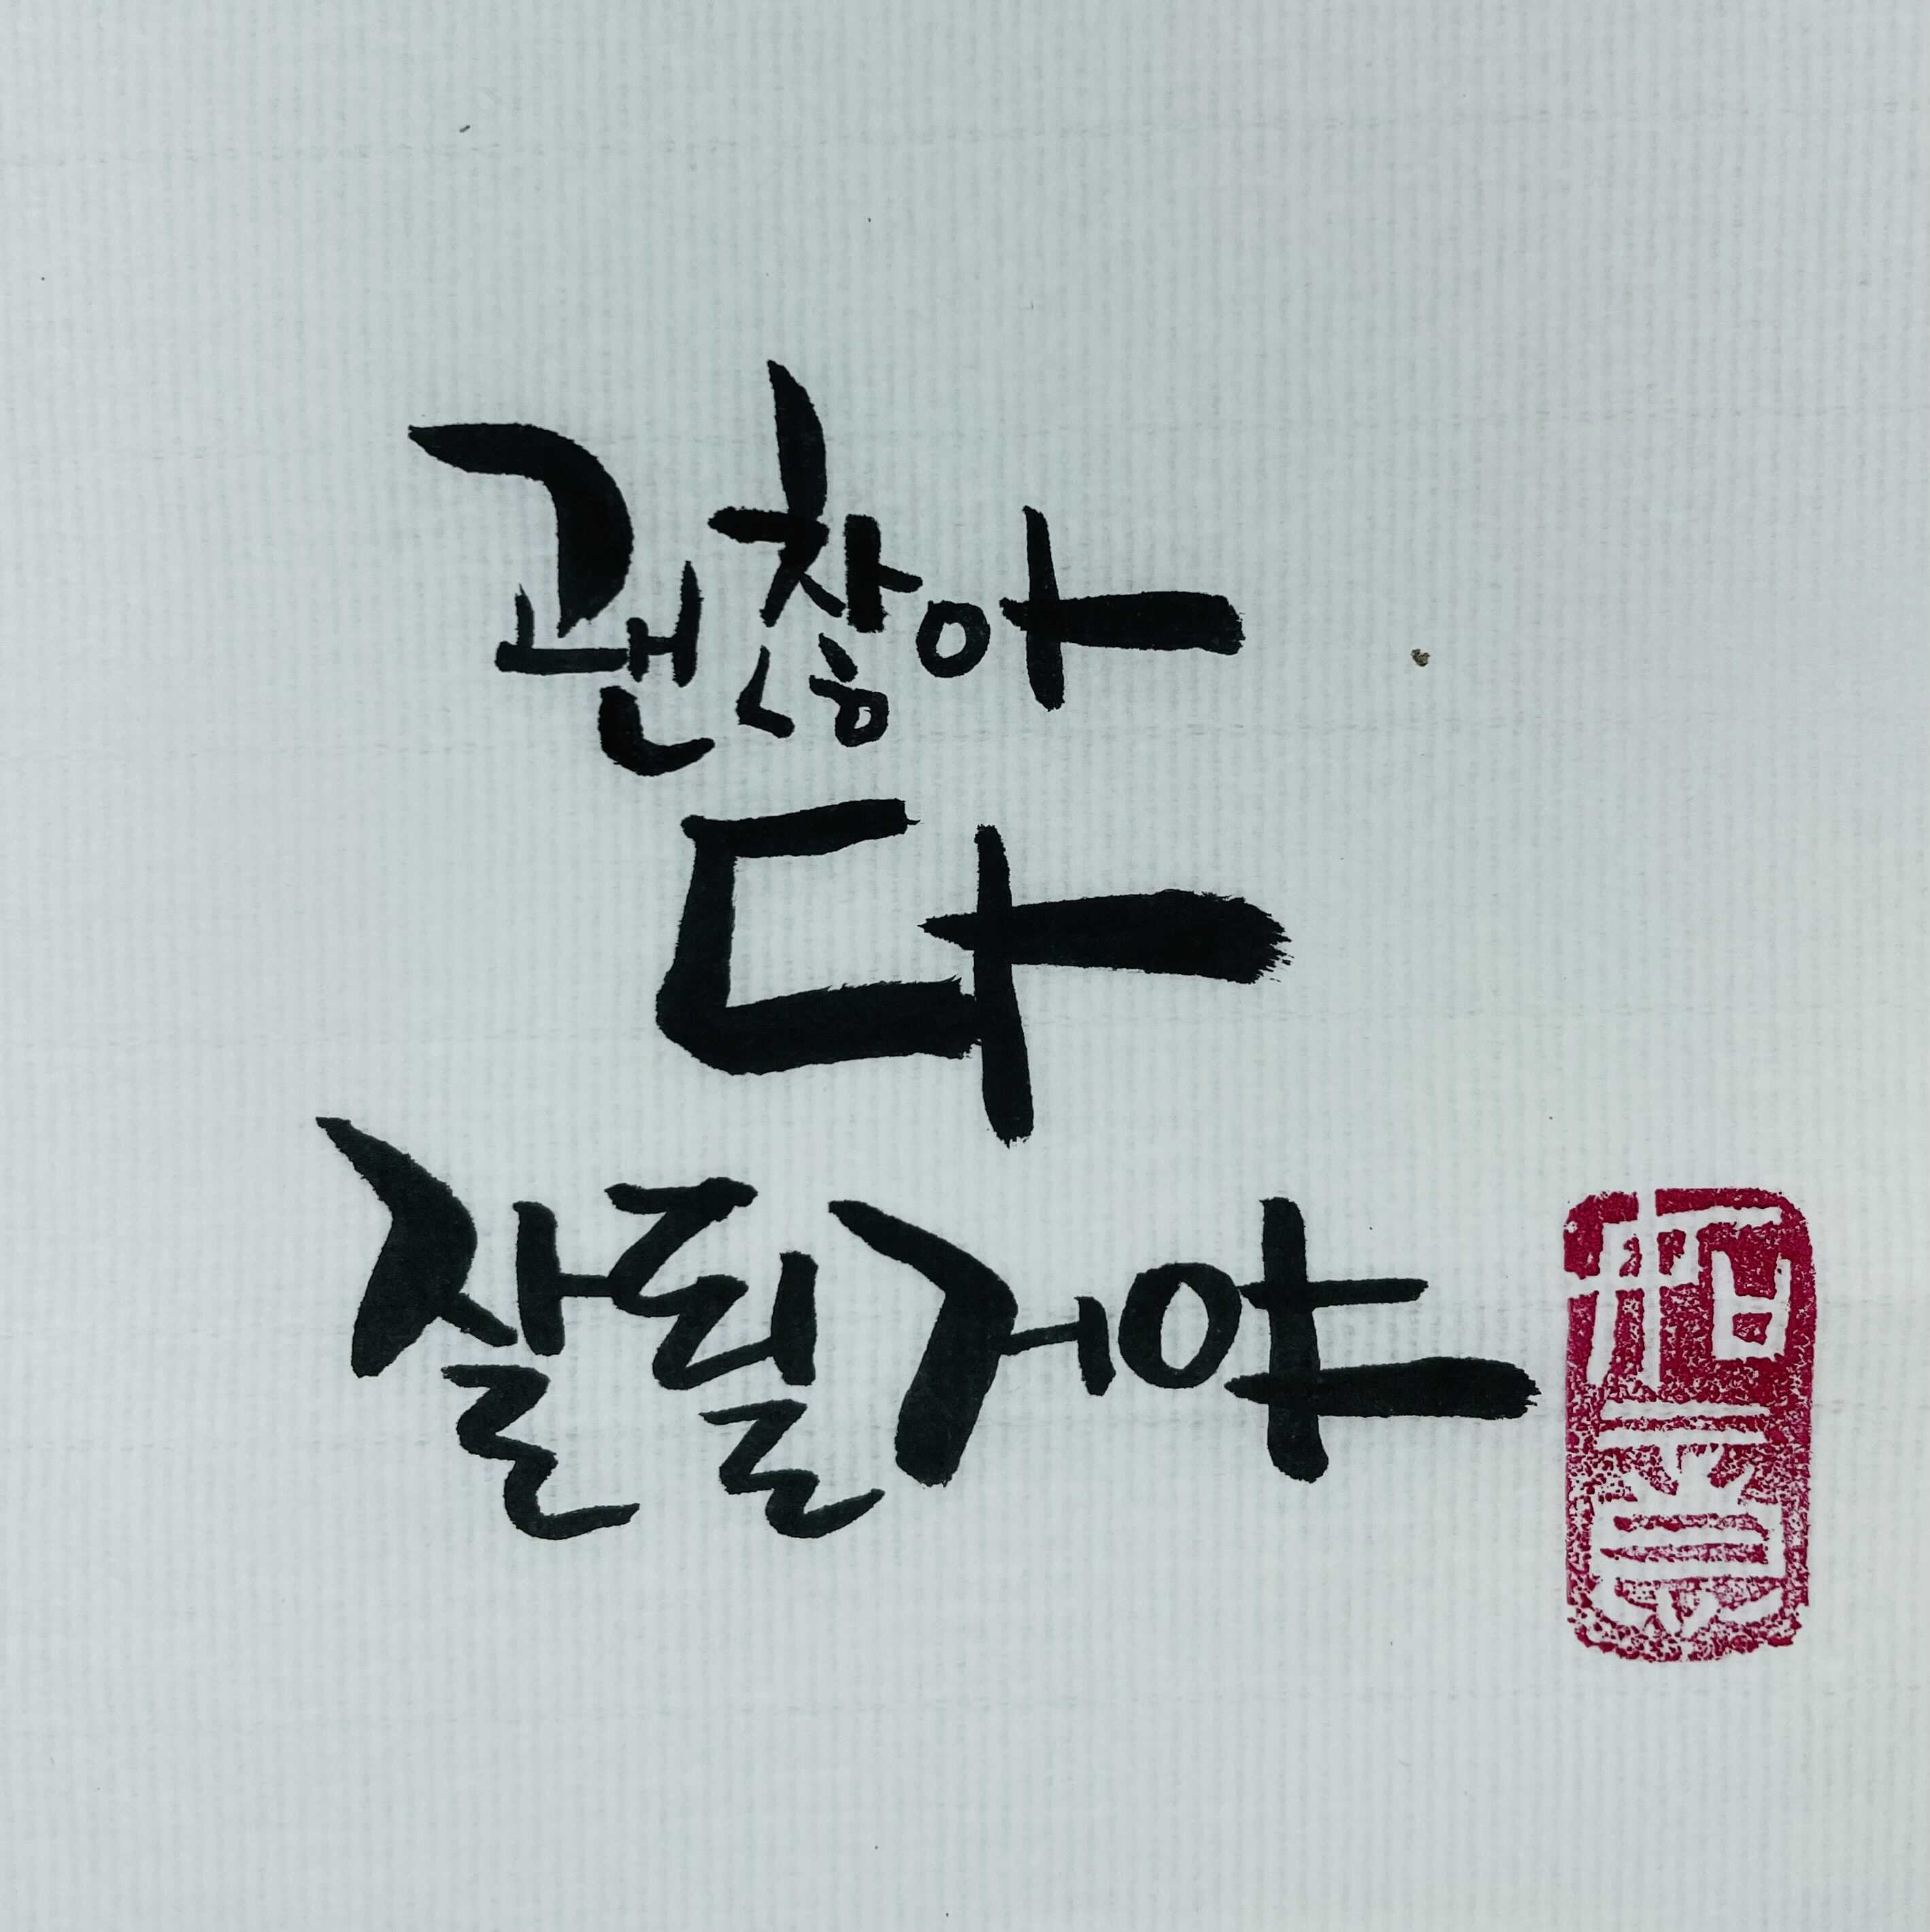 괜찮아
다
잘될거야